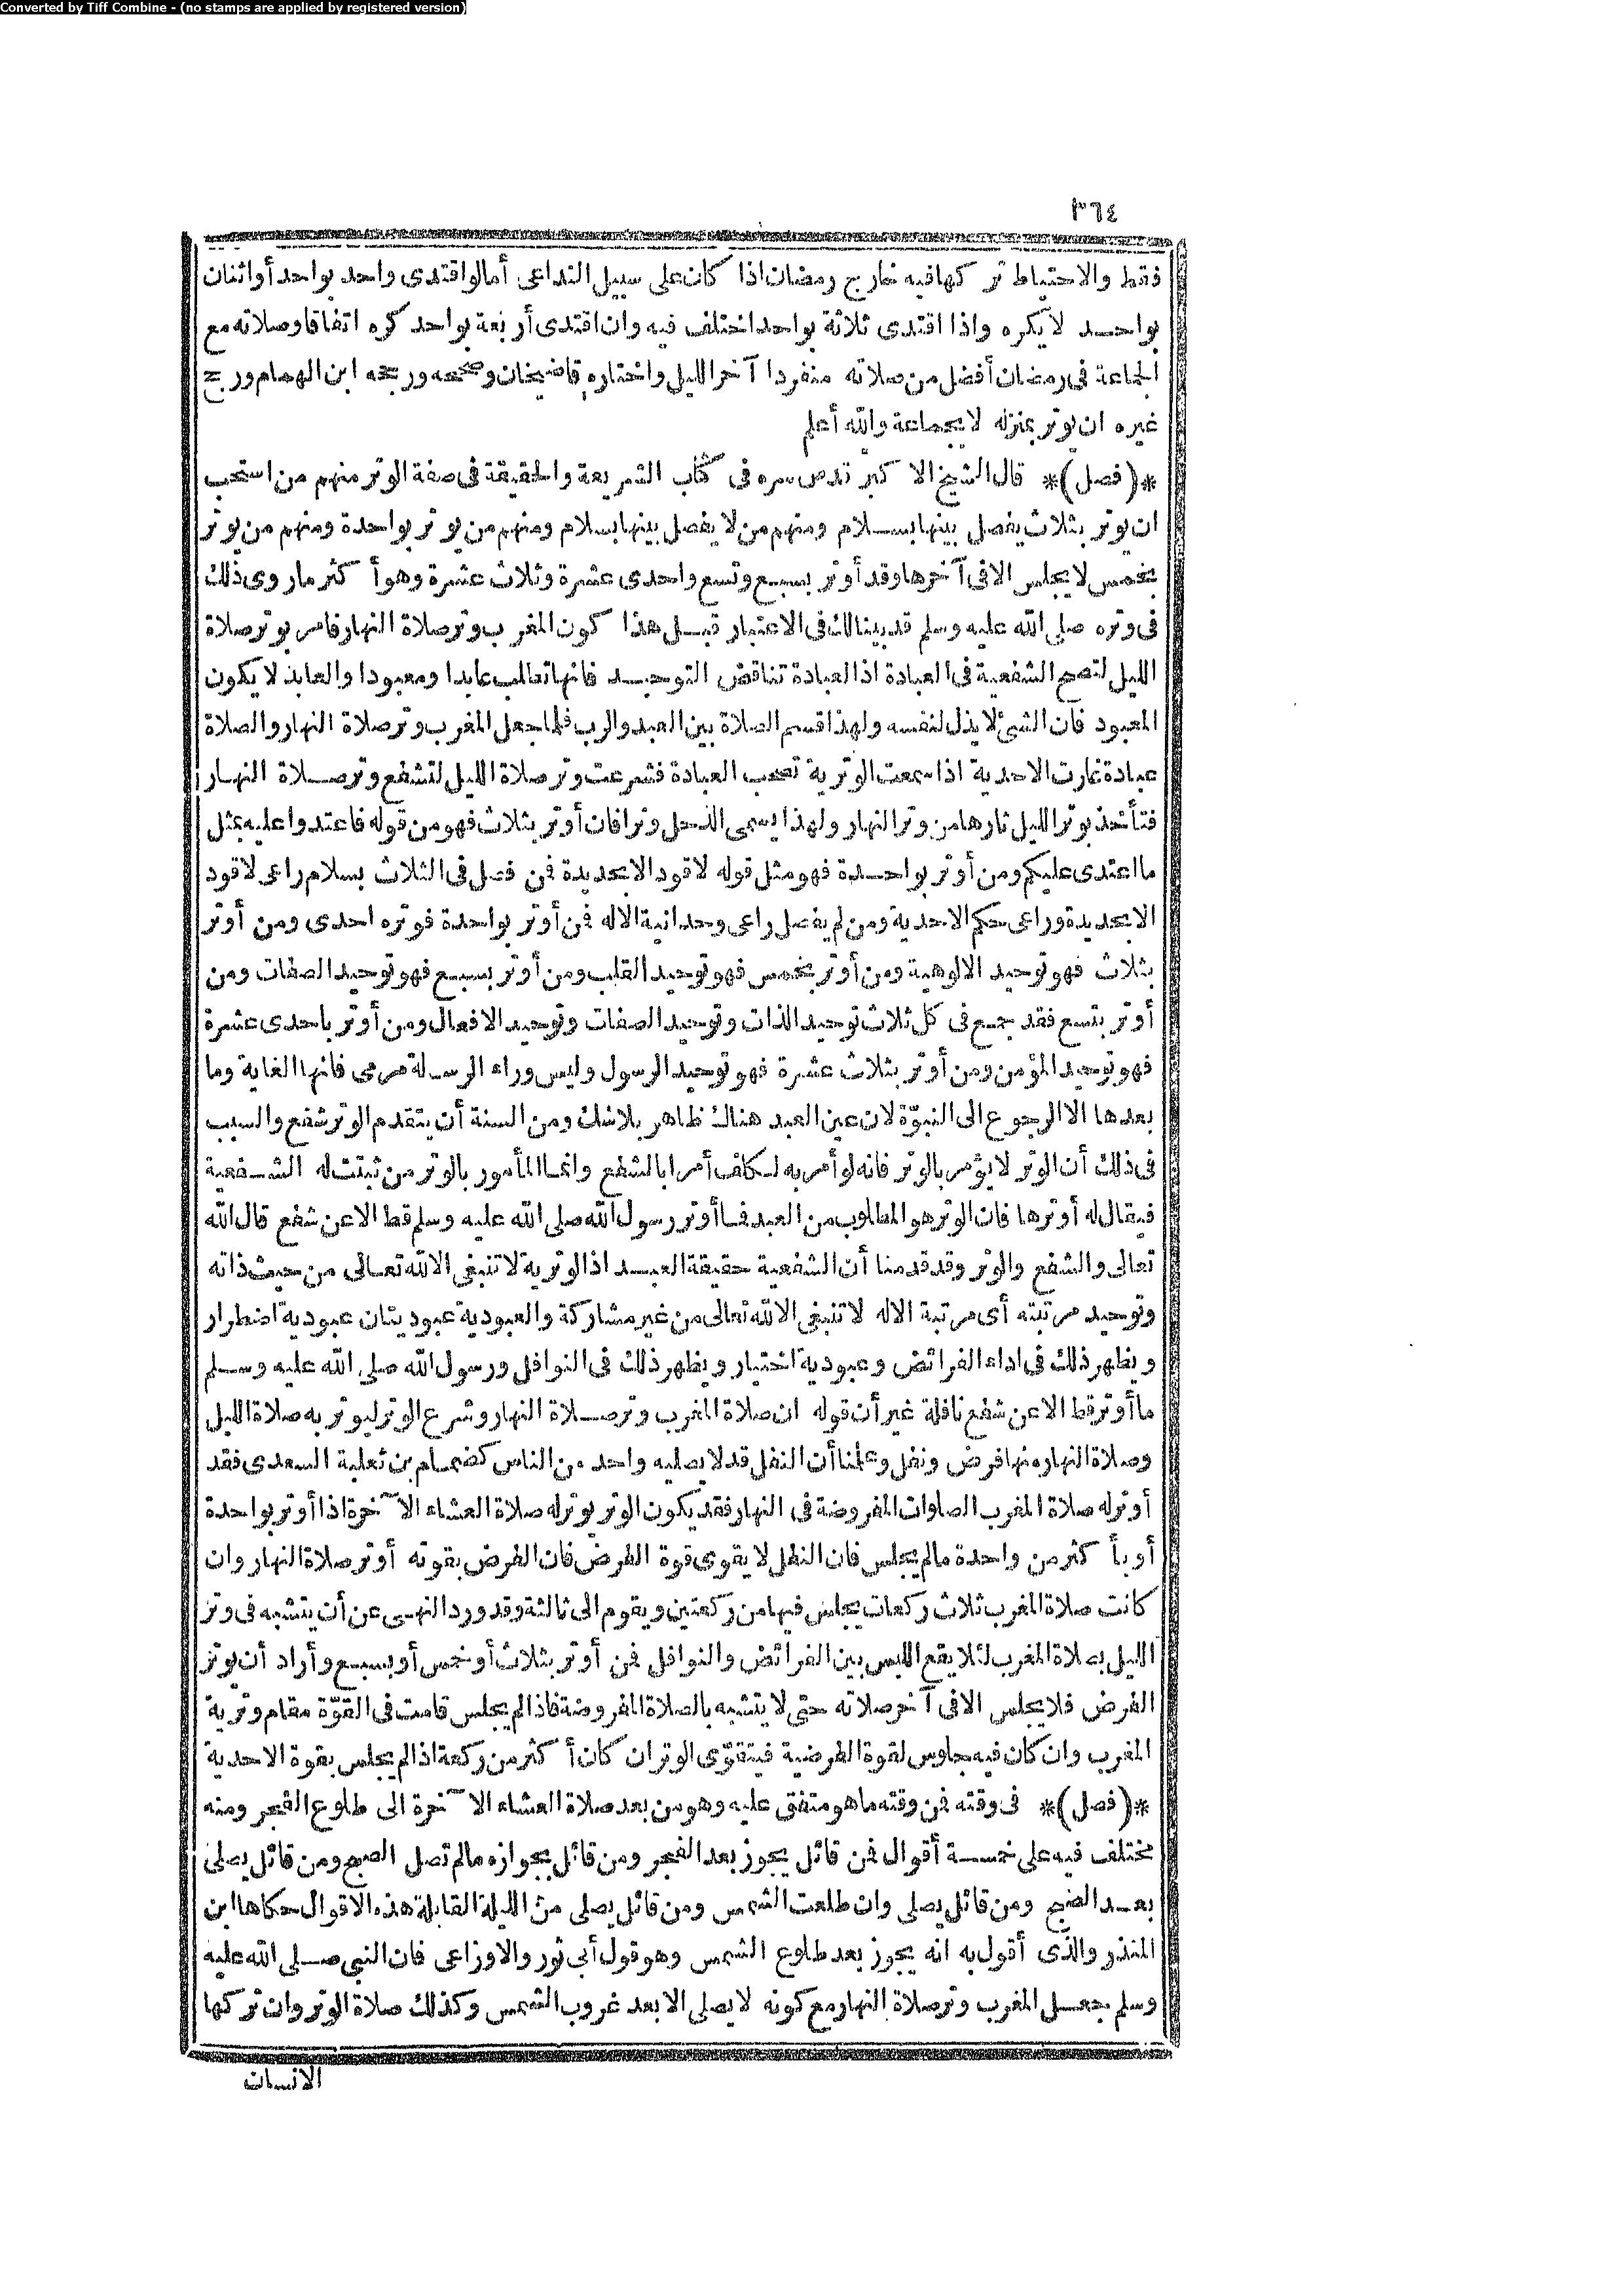 Converted by Tiff Combine - (no stamps are applied by registered version)
٣٦٤
فقط والاحتياط تركها فيه خارج رمضان اذا كان على سبيل التداعى أما لو اقتدى واحد بواحد أو اثنان
بواحد لا يكره واذا اقتدى ثلاثة بواحد اختلف فيه وان اقتدى أربعة بواحد كره اتفاقا وصلاته مع
الجماعة فى رمضان أفضل من صلاته منفردا آخر الليل واختاره قاضيخان وصححه ورجحه ابن الهمام ورجح
غيره ان يوتر بمنزله لا بجماعة والله أعلم
*(فصل)* قال الشيخ الاكبر قدس سره فى كتاب الشريعة والحقيقة فى صفة الوتر منهم من استحب
ان يوتر بثلاث يفصل بينها بسلام ومنهم من لا يفصل بينها بسلام ومنهم من يوتر بواحدة ومنهم من يوتر
بخمس لا يجلس الا فى آخرها وقد أوتر بسبع وتسع واحدى عشرة وثلاث عشرة وهو أكثر ما روى ذلك
فى وتره صلى الله عليه وسلم قد بينا لك فى الاعتبار قبل هذا كون المغرب وتر صلاة النهار فامر بوتر صلاة
الليل لتصح الشفعية فى العبادة اذ العبادة تناقض التوحيد فانها تطلب عابدا ومعبودا والعابد لا يكون
المعبود فان الشئ لا يذل لنفسه ولهذا قسم الصلاة بين العبد والرب فلما جعل المغرب وتر صلاة النهار والصلاة
عبادة غارت الاحدية اذ اسمعت الوترية تصحب العبادة فشرعت وتر صلاة الليل لتشفع وتر صلاة النهار
فتأخذ بوتر الليل ثارها من وتر النهار ولهذا يسمى الذحل وترا فان أوتر بثلاث فهو من قوله فاعتدوا عليه بمثل
ما اعتدى عليكم ومن أوتر بواحدة فهو مثل قوله لا قود الا بحديدة فمن فصل فى الثلاث بسلام راعى لا قود
الا بحديدة وراعى حكم الاحدية ومن لم يفصل راعى وحدانية الاله فمن أوتر بواحدة فوتره احدى ومن أوتر
بثلاث فهو توحيد الالوهية ومن أوتر بخمس فهو توحيد القلب ومن أوتر بسبع فهو توحيد الصفات ومن
أوتر بتسع فقد جمع فى كل ثلاث توحيد الذات وتوحيد الصفات وتوحيد الافعال ومن أوتر باحدى عشرة
فهو توحيد المؤمن ومن أوتر بثلاث عشرة فهو توحيد الرسول وليس وراء الرسالة مرمى فانها الغاية وما
بعدها الا الرجوع الى النبوّة لان عين العبد هناك ظاهر بلا شك ومن السنة أن يتقدم الوتر شفع والسبب
فى ذلك أن الوتر لا يؤمر بالوتر فانه لو أمر به لكاف أمرا بالشفع وانما المأمور بالوتر من ثبتت له الشفعية
فيقال له أوترها فان الوتر هو المطلوب من العبد فما أوتر رسول الله صلى الله عليه وسلم قط الا عن شفع قال الله
تعالى والشفع والوتر وقد قدمنا أن الشفعية حقيقة العبد اذ الوترية لا تنبغى الا لله تعالى من حيث ذاته
وتوحيد مرتبته أى مرتبة الاله لا تنبغى الا لله تعالى من غير مشاركة والعبودية عبوديتان عبودية اضطرار
ويظهر ذلك فى اداء الفرائض وعبودية اختيار ويظهر ذلك فى النوافل ورسول الله صلى الله عليه وسلم
ما أوتر قط الا عن شفع نافلة غير أن قوله ان صلاة المغرب وتر صلاة النهار وشرع الوتر ليوتر به صلاة الليل
وصلاة النهار منها فرض ونفل وعلمنا أن النفل قد لا يصليه واحد من الناس كضمام بن ثعلبة السعدى فقد
أوتر له صلاة المغرب الصلوات المفروضة فى النهار فقد يكون الوتر يوتر له صلاة العشاء الآخرة اذا أوتر بواحدة
أو بأكثر من واحدة مالم يجلس فان النفل لا يقوى قوة الفرض فان الفرض بقوته أوتر صلاة النهار وان
كانت صلاة المغرب ثلاث ركعات يجلس فيها من ركعتين ويقوم الى ثالثة وقد ورد النهى عن أن يتشبه فى وتر
الليل بصلاة المغرب لئلا يقع اللبس بين الفرائض والنوافل فمن أوتر بثلاث أو خمس أو بسبع وأراد أن يوتر
الفرض فلا يجلس الا فى آخر صلاته حتى لا يتشبه بالصلاة المفروضة فاذا لم يجلس قامت فى القوّة مقام وترية
المغرب وان كان فيه جلوس لقوة الفرضية فيتقوّى الوتر ان كان أكثر من ركعة اذا لم يجلس بقوة الاحدية
*(فصل)* فى وقته فمن وقته ما هو متفق عليه وهو من بعد صلاة العشاء الآخرة الى طلوع الفجر ومنه
مختلف فيه على خمسة أقوال فمن قائل يجوز بعد الفجر ومن قائل بجوازه مالم تصل الصبح ومن قائل يصلى
بعد الصبح ومن قائل يصلى وان طلعت الشمس ومن قائل يصلى من الليلة القابلة هذه الاقوال حكاها ابن
المنذر والذى أقول به انه يجوز بعد طلوع الشمس وهو قول أبى ثور والاوزاعى فان النبى صلى الله عليه
وسلم جعل المغرب وتر صلاة النهار مع كونه لا يصلى الا بعد غروب الشمس وكذلك صلاة الوتر وان تركها
الانسان